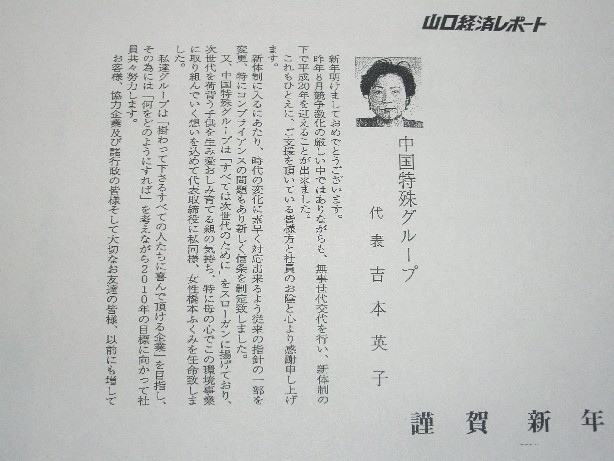 山口経済レポート
謹賀新年
中国特殊グループ
代表 吉本英子
新年明けましておめでとうございます。
昨年8月競争激化の厳しい中ではありながらも、無事世代交代を行い、新体制の
下で平成20年を迎えることが出来ました。
これもひとえに、ご支援を頂いている皆様方と社員のお陰と心より感謝申し上げ
ます。
新体制に入るにあたり、時代の変化に素早く対応出来るよう従来の指針の一部を
変更、特にコンプライアンスの問題もあり新しく信条を制定致しました。
又、中国特殊グループは「すべては次世代のために」をスローガンに掲げており、
次世代を荷背う子供を生み愛おしみ育てる親の気持ち、特に母の心でこの環境事業
に取り組んでいく想いを込めて代表取締役に私同様、女性橋本ふくみを任命致しま
した。
私達グループは「掛わって下さるすべての人たちに喜んで頂ける企業」を目指し、
その為には「何をどのようにすれば」を考えながら2010年の目標に向かって社
員共々努力します。
お客様、協力企業及び諸行政の皆様そして大切なお友達の皆様、以前にも増して